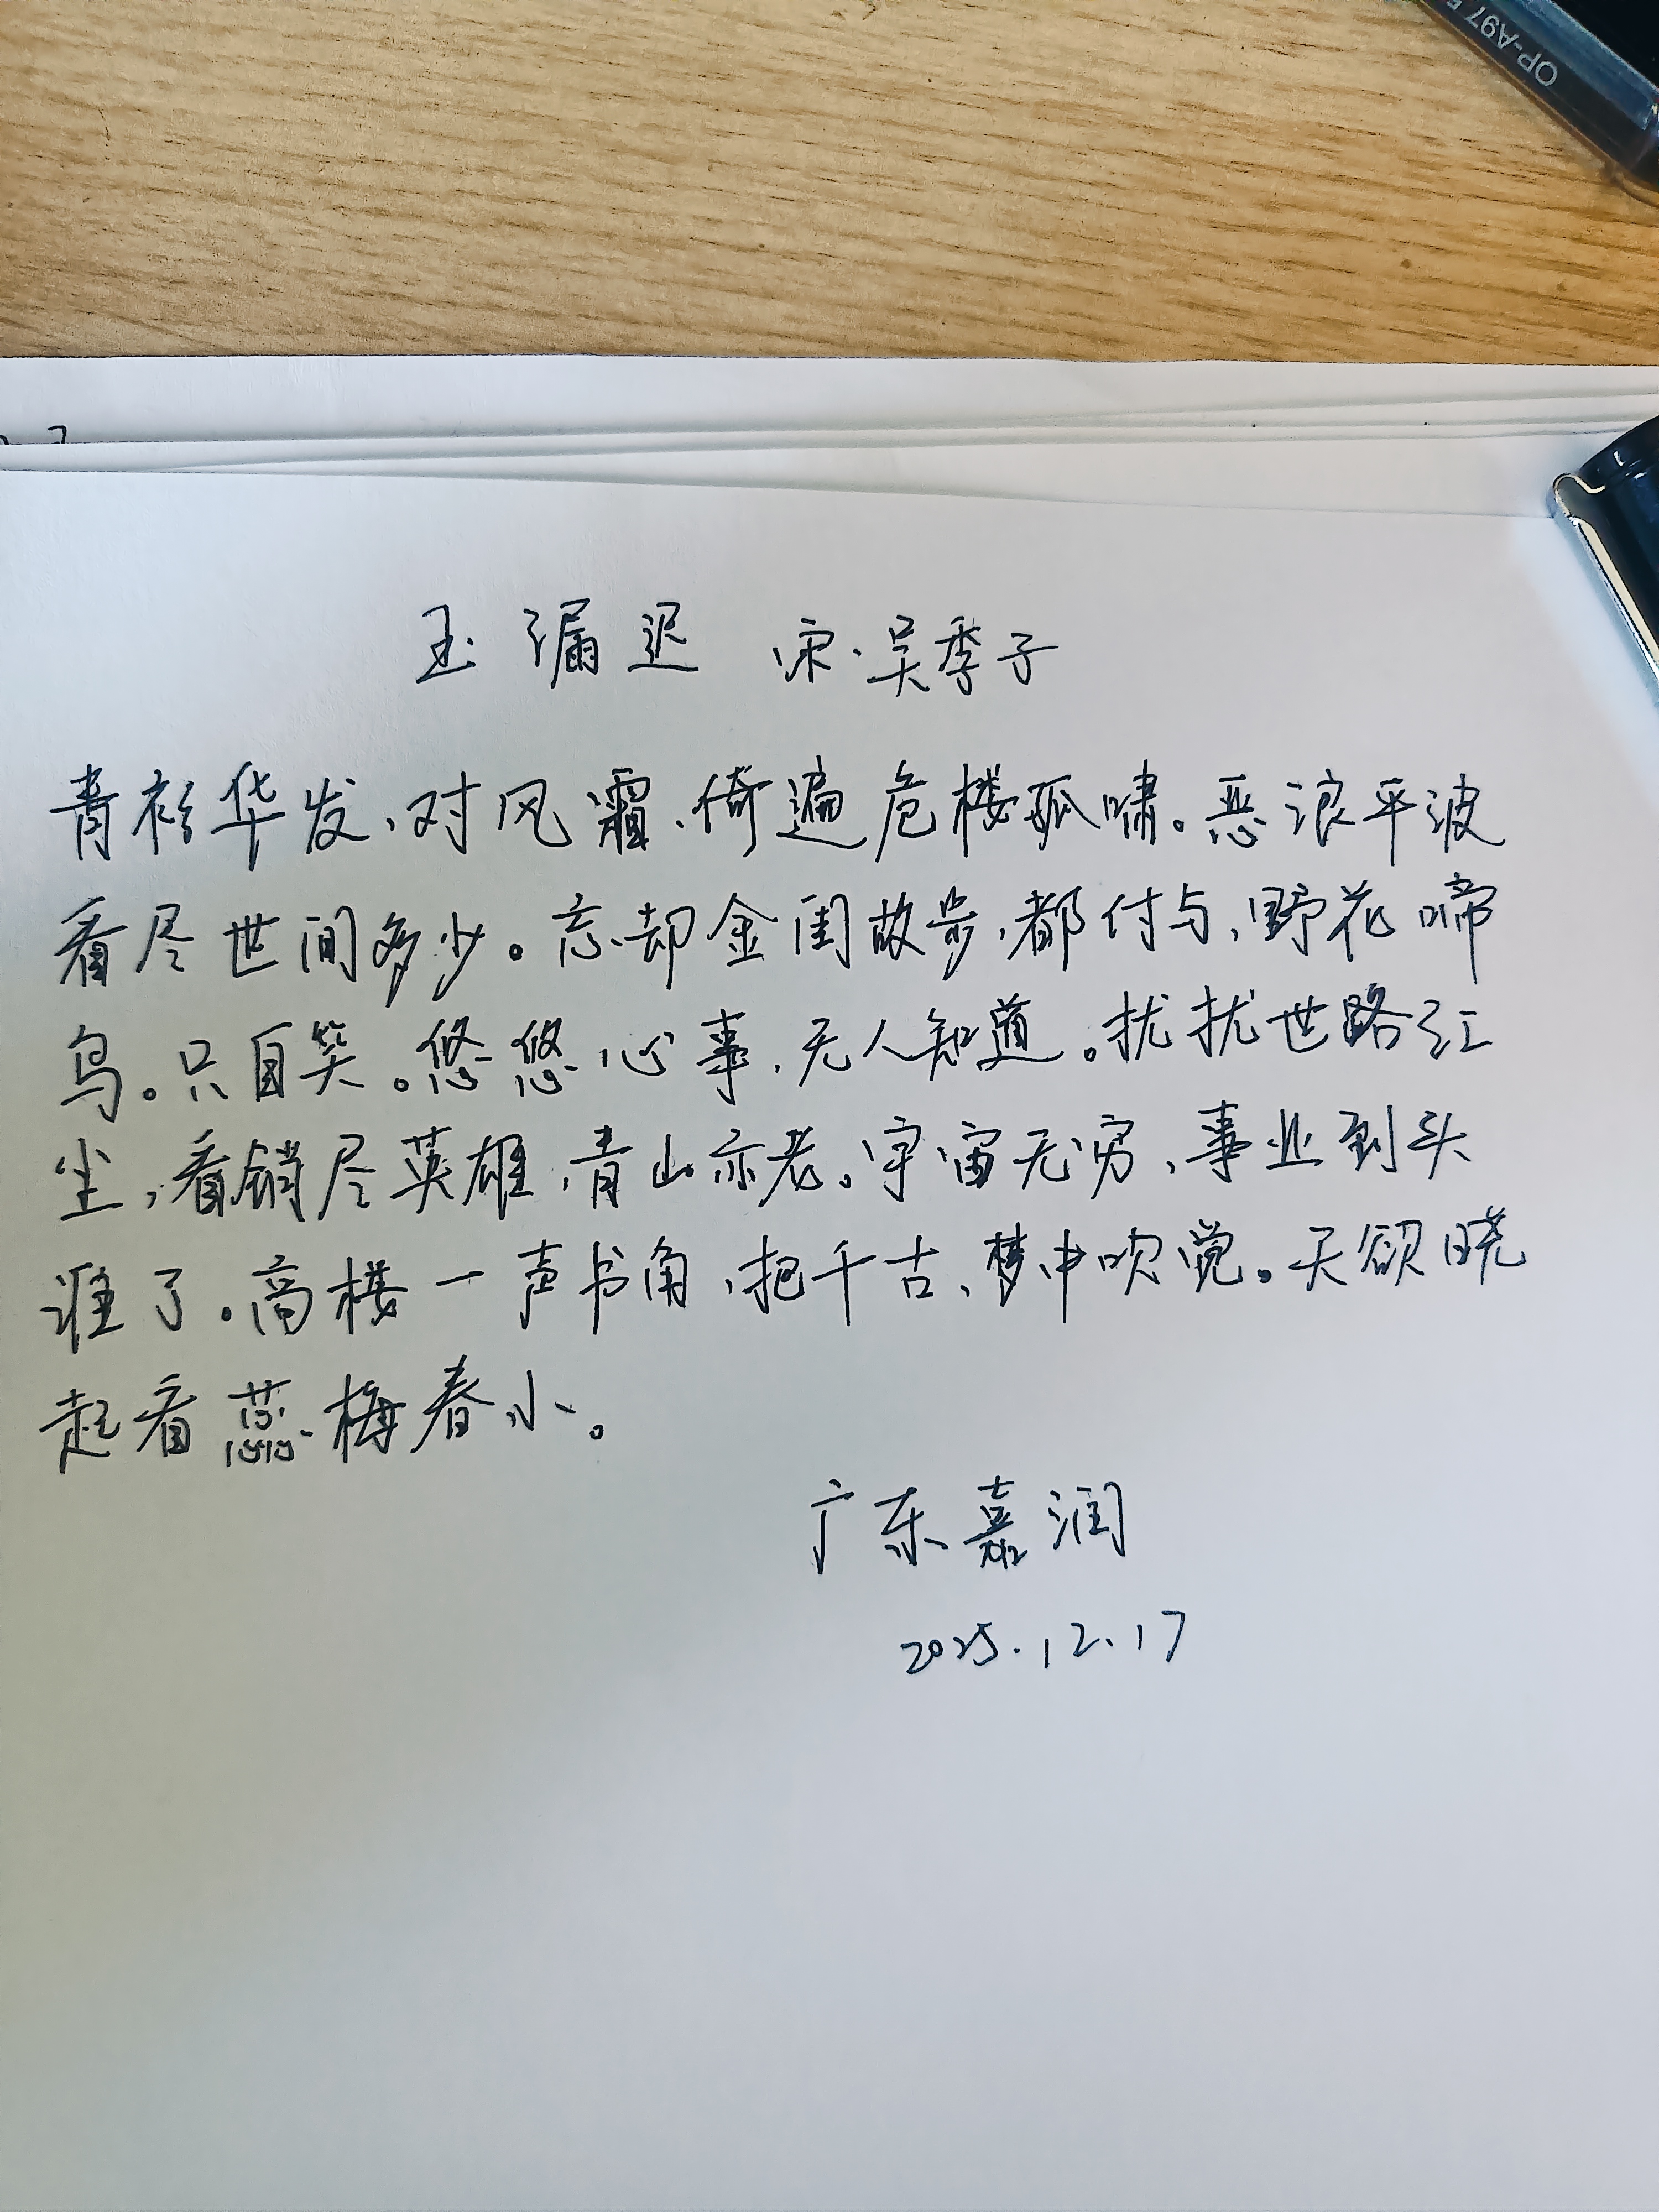 OP-A97
玉漏迟 宋·吴季子
青衫华发、对风霜、倚遍危楼孤啸。恶浪平波
看尽世间多少。忘却金闺故步,都付与,野花啼
鸟。只自笑。悠悠心事,无人知道。扰扰世路红
尘,看销尽英雄,青山亦老。宇宙无穷,事业到头
谁了。高楼一声书角,把千古、梦中吹觉。天欲晓
起看蕊梅春小。
广东嘉润
2025.12.17